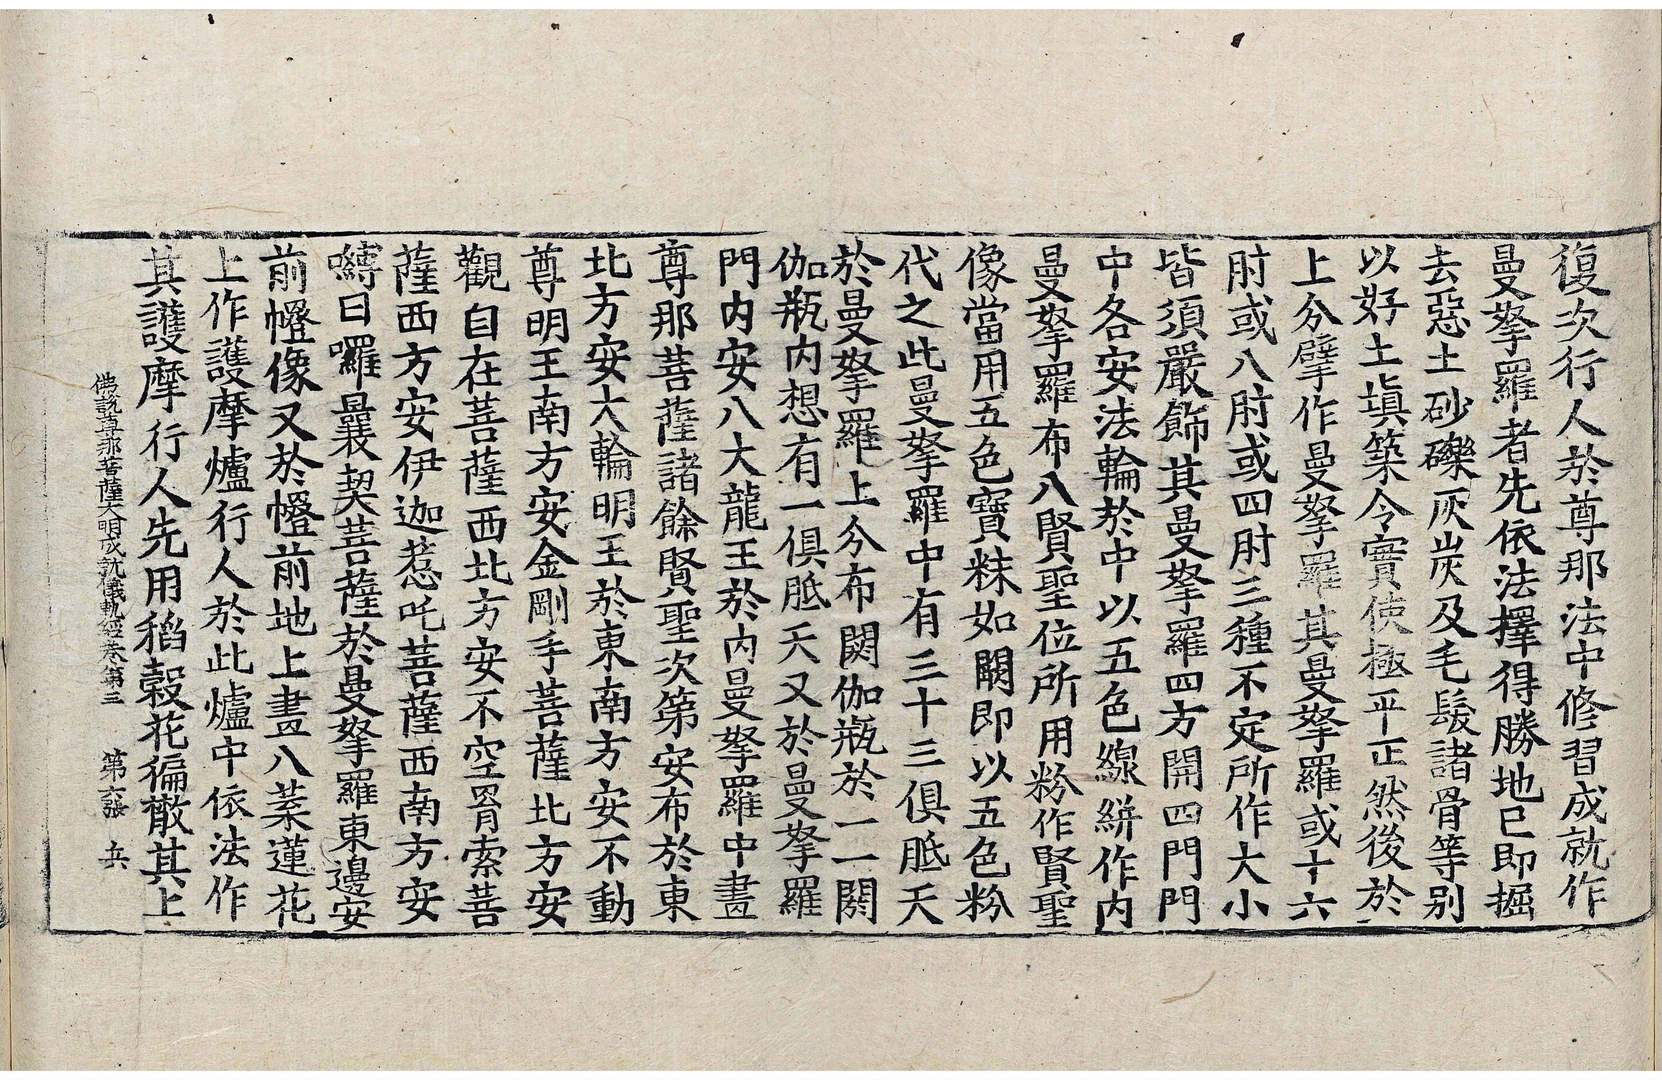 復次行人於尊那法中修習成就作
曼拏羅者先依法擇得勝地已即掘
去惡土砂礫灰炭及毛髮諸骨等别
以好土塡築令實使極平正然後於
上分擘作曼拏羅其曼拏羅或十六
肘或八肘或四肘三種不定所作大小
皆須嚴飾其曼拏羅四方開四門門
中各安法輪於中以五色線絣作内
曼拏羅布八賢聖位所用粉作賢聖
像當用五色寶粖如闕即以五色粉
代之此曼拏羅中有三十三俱胝天
於曼拏羅上分布閼伽瓶於一一閼
伽瓶内想有一俱胝天又於曼拏羅
門内安八大龍王於内曼拏羅中畫
尊那菩薩諸餘賢聖次第安布於東
北方安大輪明王於東南方安不動
尊明王南方安金剛手菩薩北方安
觀自在菩薩西北方安不空罥索菩
薩西方安伊迦惹吒菩薩西南方安
嚩日囉曩契菩薩於曼拏羅東邊安
前㡧像又於㡧前地上畫八葉蓮花
上作護摩爐行人於此爐中依法作
其護摩行人先用稻穀花徧散其上
佛說尊那菩薩大明成就儀軌經卷第三 第六張 兵